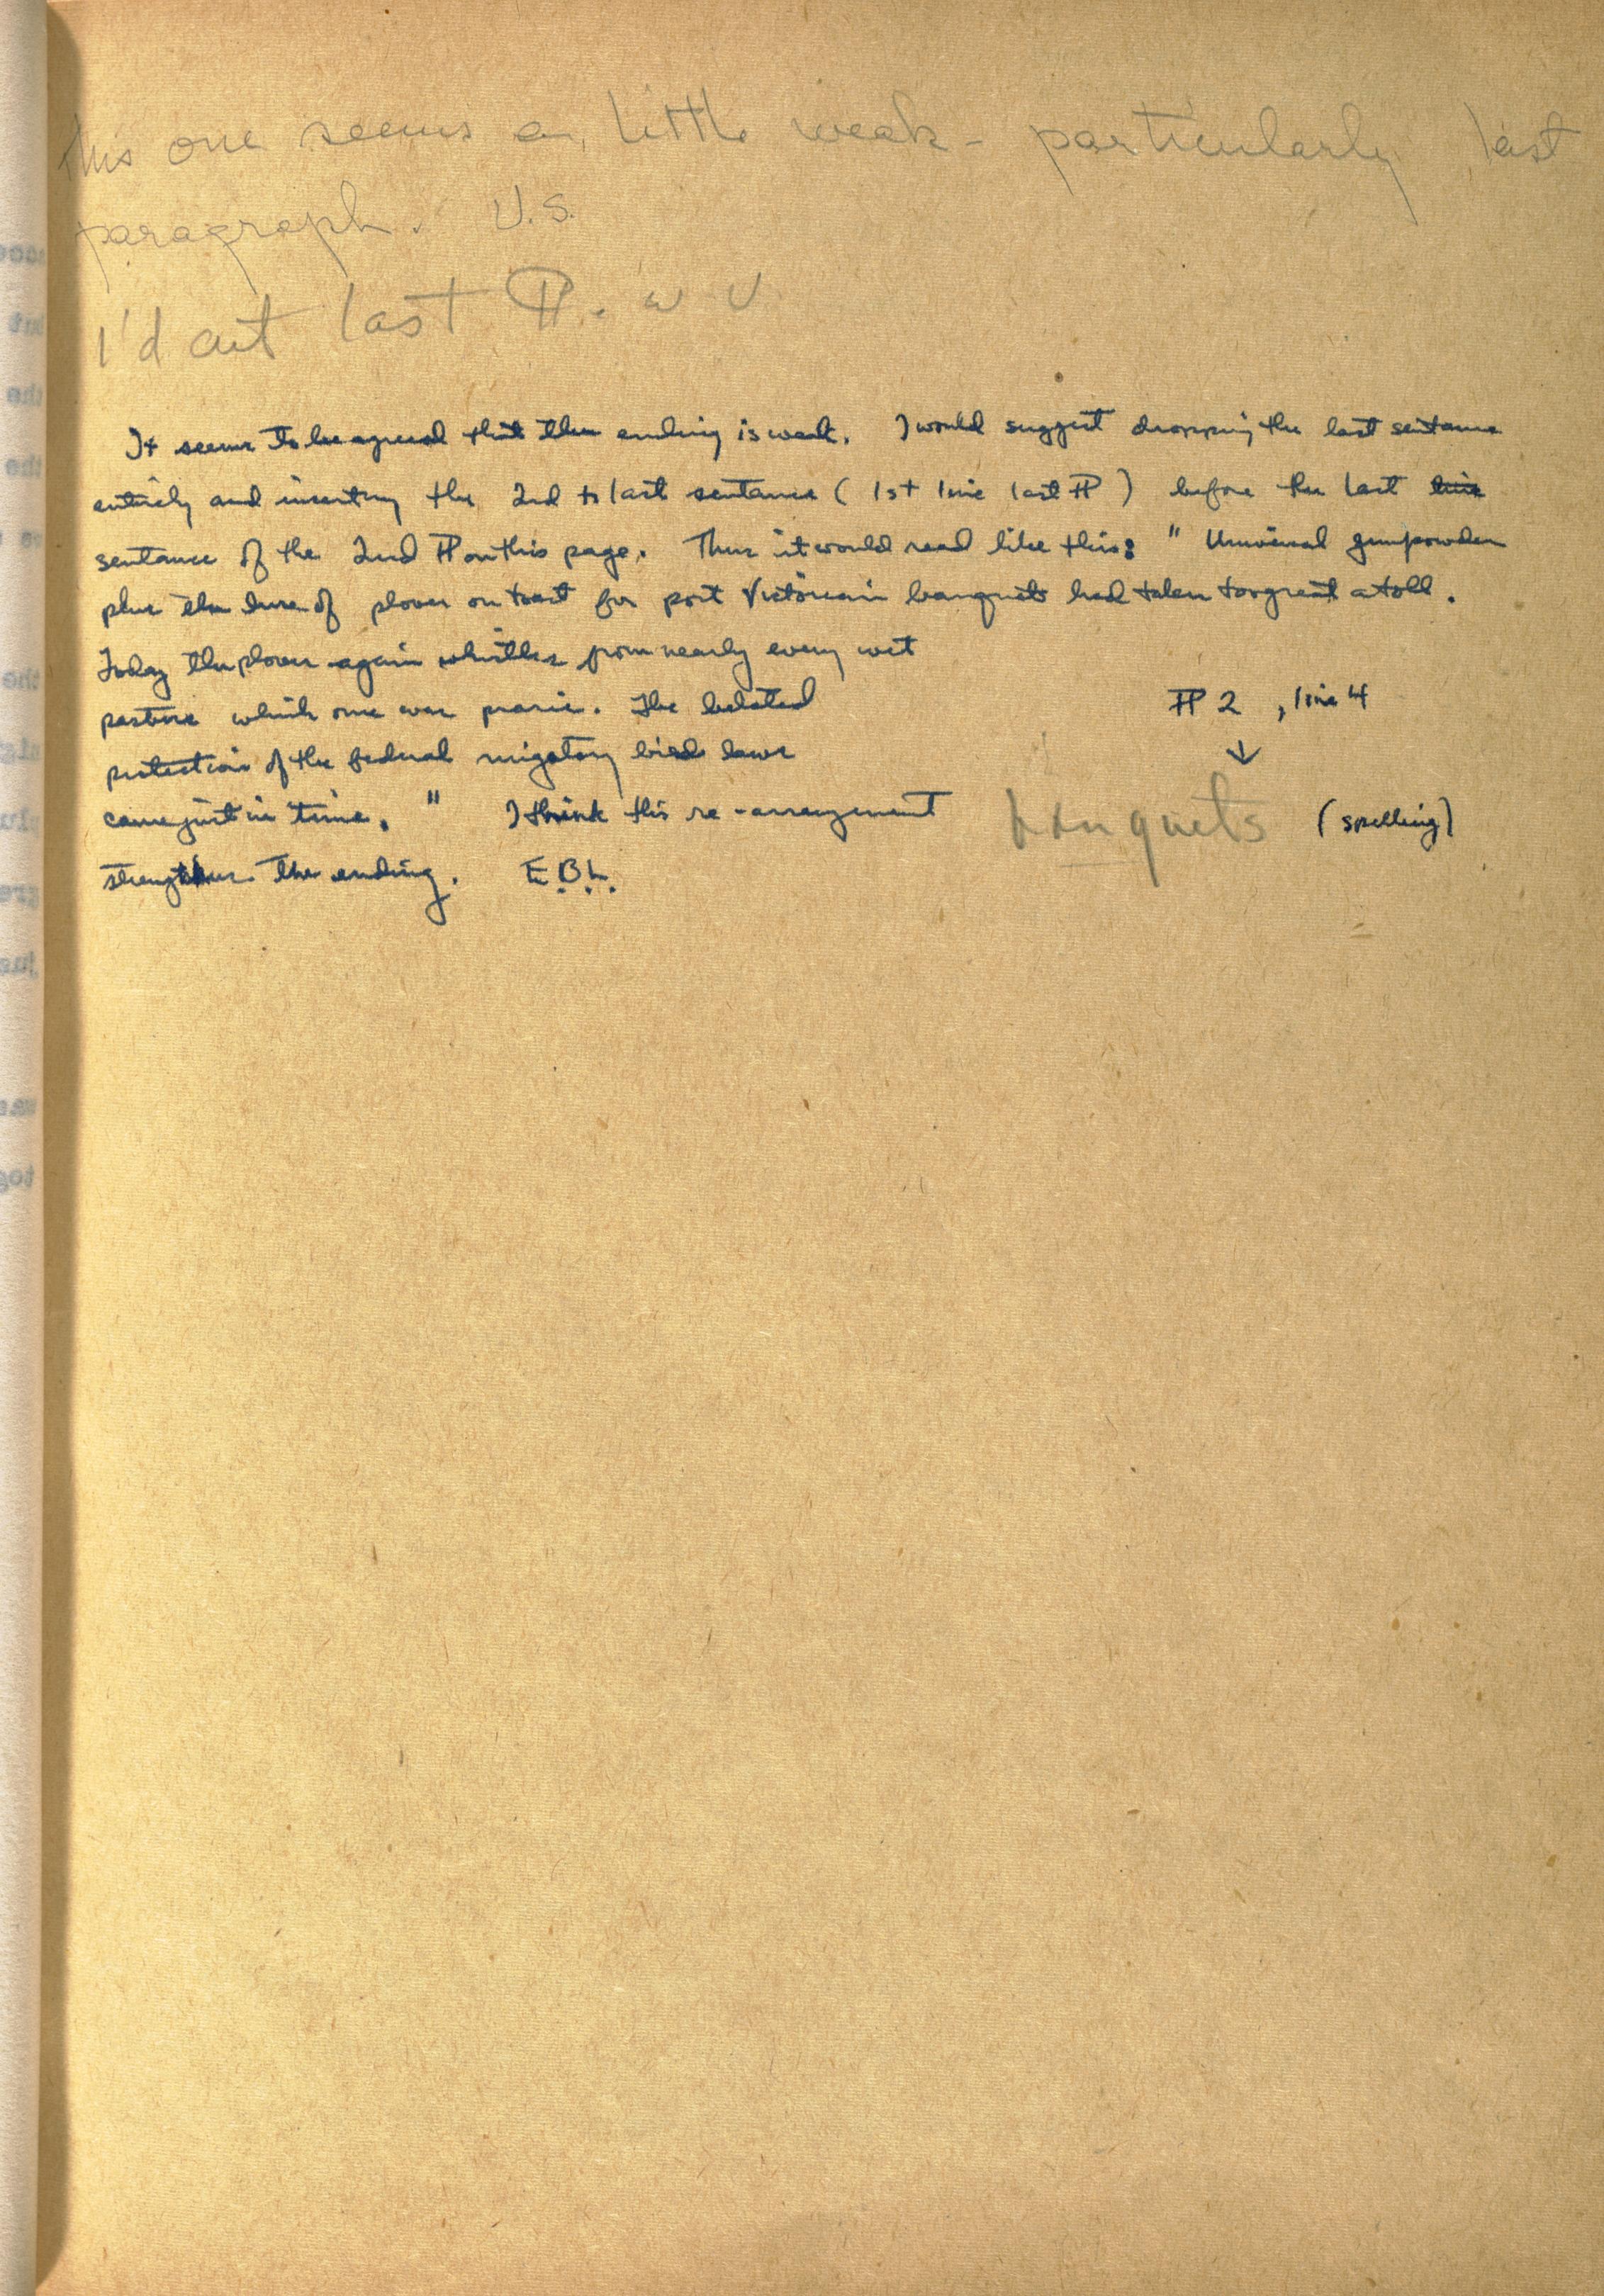 This one seems a little weak - particularly last
paragraph. V.S.
I'd cut last ¶. W V
It seems to be agreed that the ending is weak. I would suggest dropping the last sentence
entirely and inserting the 2nd to last sentence (1st line last ¶) before the last line
sentence of the 2nd ¶ on this page. Thus it would read like this: "Universal gunpowder
plus the lure of plover on toast for post Victorian banquets had taken too great a toll.
Today the plover again whistles from nearly every wet
pasture which once was prairie. The belated
¶ 2, line 4
↓
protection of the federal migatory bird laws
came just in time." I think this re-arrangement
banquets (spelling)
strengthens the ending. E.B.L.